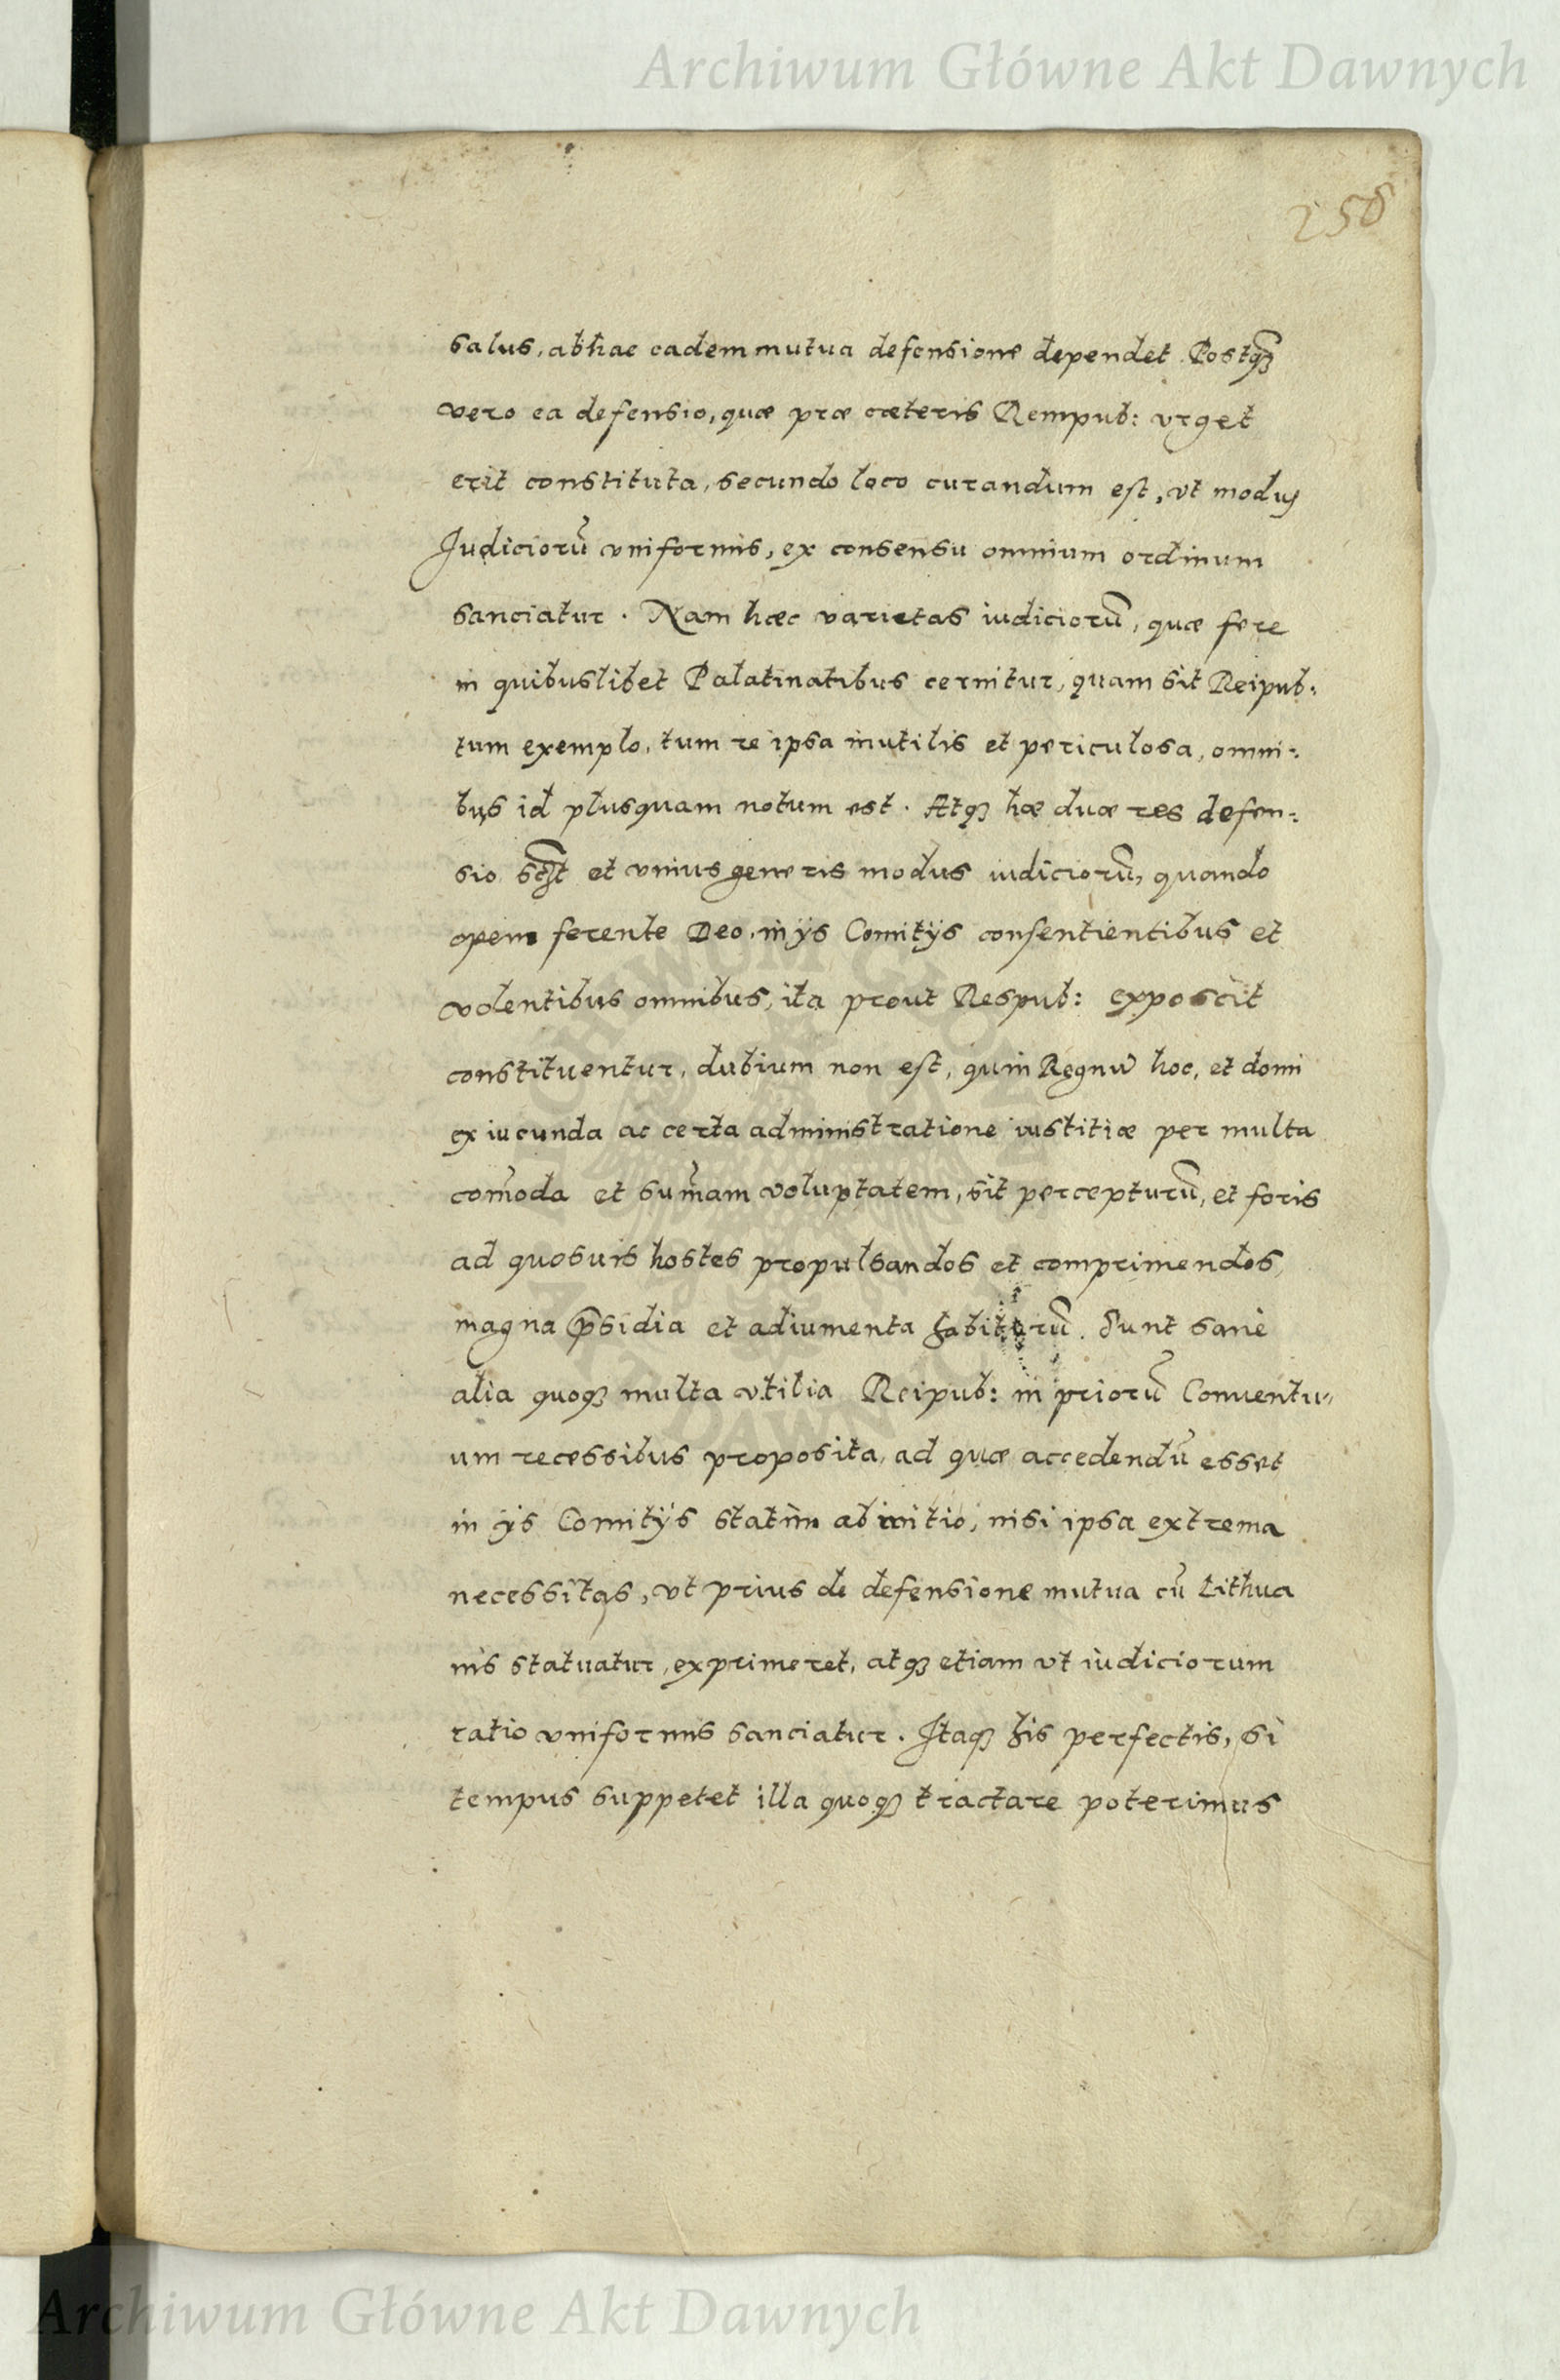 Archiwum Główne Akt Dawnych
258
salus, ab hac eadem mutua defensione dependet. Postqꝫ̃
vero ea defensio, quæ præ cæteris Rempub: vrget
erit constituta, secundo loco curandum est, vt modus
Judiciorũ vniformis, ex consensu omnium ordinum
sanciatur. Nam hæc varietas iudiciorũ, quæ fere
in quibuslibet Palatinatibus cernitur, quam sit Reipub:
tum exemplo, tum re ipsa inutilis et periculosa, omni:
bus id plusquam notum est. Atqꝫ hæ duæ res defen:
sio et vnius generis modus iudiciorũ, quando
opem ferente Deo, in ijs Comitijs consentientibus et
volentibus omnibus, ita prout Respub: exposcit
constituentur, dubium non est, quin Regnũ hoc, et domi
ex iucunda ac certa administratione iustitiæ per multa
com̃oda et sum̃am voluptatem, sit percepturũ, et foris
ad quosuis hostes propulsandos et comprimendos,
magna p̃sidia et adiumenta habiturũ. Sunt sane
alia quoqꝫ multa vtilia Reipub: in priorũ Conuentu,,
um recessibus proposita, ad quæ accedendũ esset
in ijs Comitijs statim ab initio, nisi ipsa extrema
necessitas, vt prius de defensione mutua cũ Lithua
nis statuatur, exprimeret, atqꝫ etiam vt iudiciorum
ratio vniformis sanciatur. Itaqꝫ his perfectis, si
tempus suppetet illa quoqꝫ tractare poterimus
Archiwum Główne Akt Dawnych